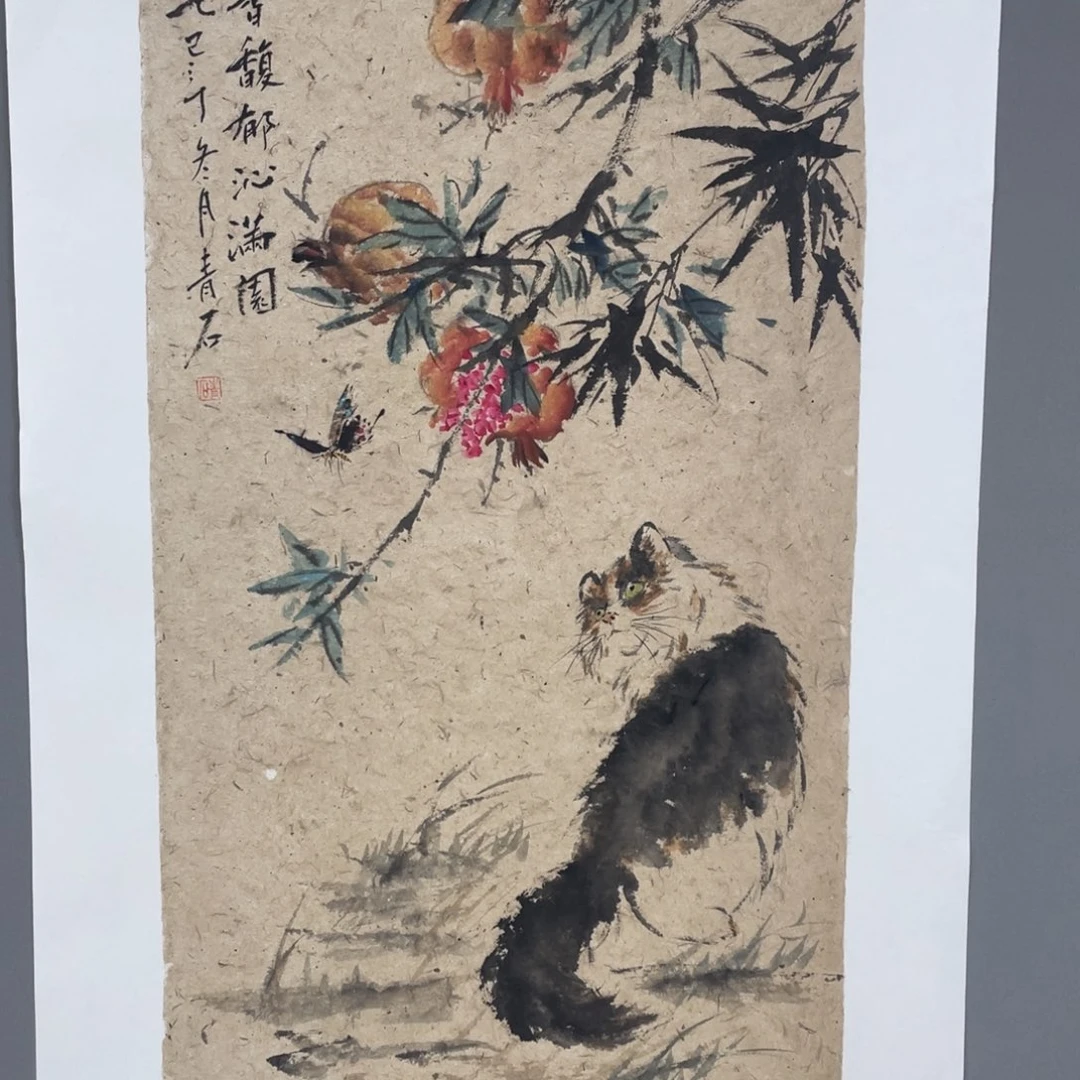 香馥郁沁滿園
巳冬月青石